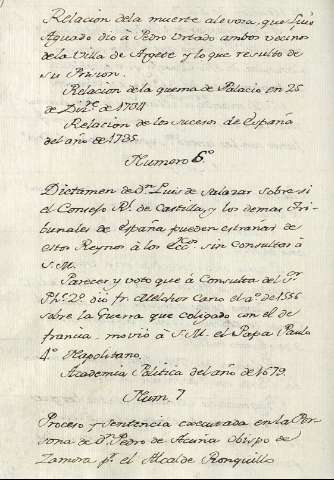 Relacion dela muerte alevosa, que Luis
Aguado dio à Pedro Urtado ambos vecinos
dela Villa de Argete y lo que resulto de
su Prision.
Relacion dela quema de Palacio en 25
de Dizre. de 1734
Relacion de los sucesos de España
del año de 1735
Numoro 6º
Dictamen de Dn. Luis de Salazar sobre si
el Consejo Rl. de Castilla, y los demas Tri-
bunales de España pueden estrañar de
estos Reynos à los Eccos. sin Consultar à
S.M.
Parecer y voto que à Consulta del Sr.
Phe. 2º dio fr. Melchor Cano el aº de 1556
sobre la Guerra que coligado con el de
francia movió à S.M. el Papa Paulo
4º Napolitano.
Academia Politica del año de 1679.
Num. 7
Proceso y sentencia executada en la Per-
sona de Dn. Pedro de Acuña Obispo de
Zamora pr. el Alcalde Ronquillo